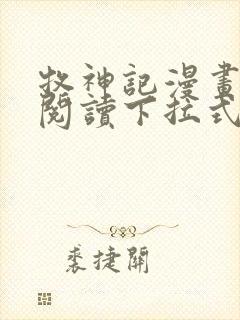 牧神記漫畫
閱讀下拉式
裘捷開